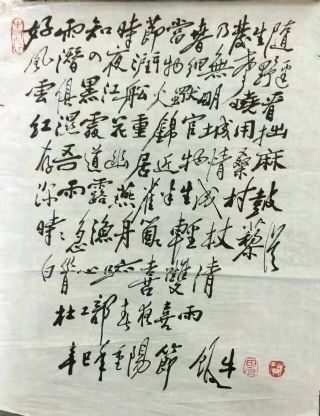 好雨知時節當春乃發生隨
風潛入夜潤物細無聲野逕
雲俱黑江船火獨明曉看
紅濕處花重錦官城用拙
存吾道幽居近物情桑麻
深雨露燕雀半生成村鼓
時〻急漁舟箇〻輕杖藜從
白首心跡喜雙清
杜工部春夜喜雨
辛巳年重陽節 牛